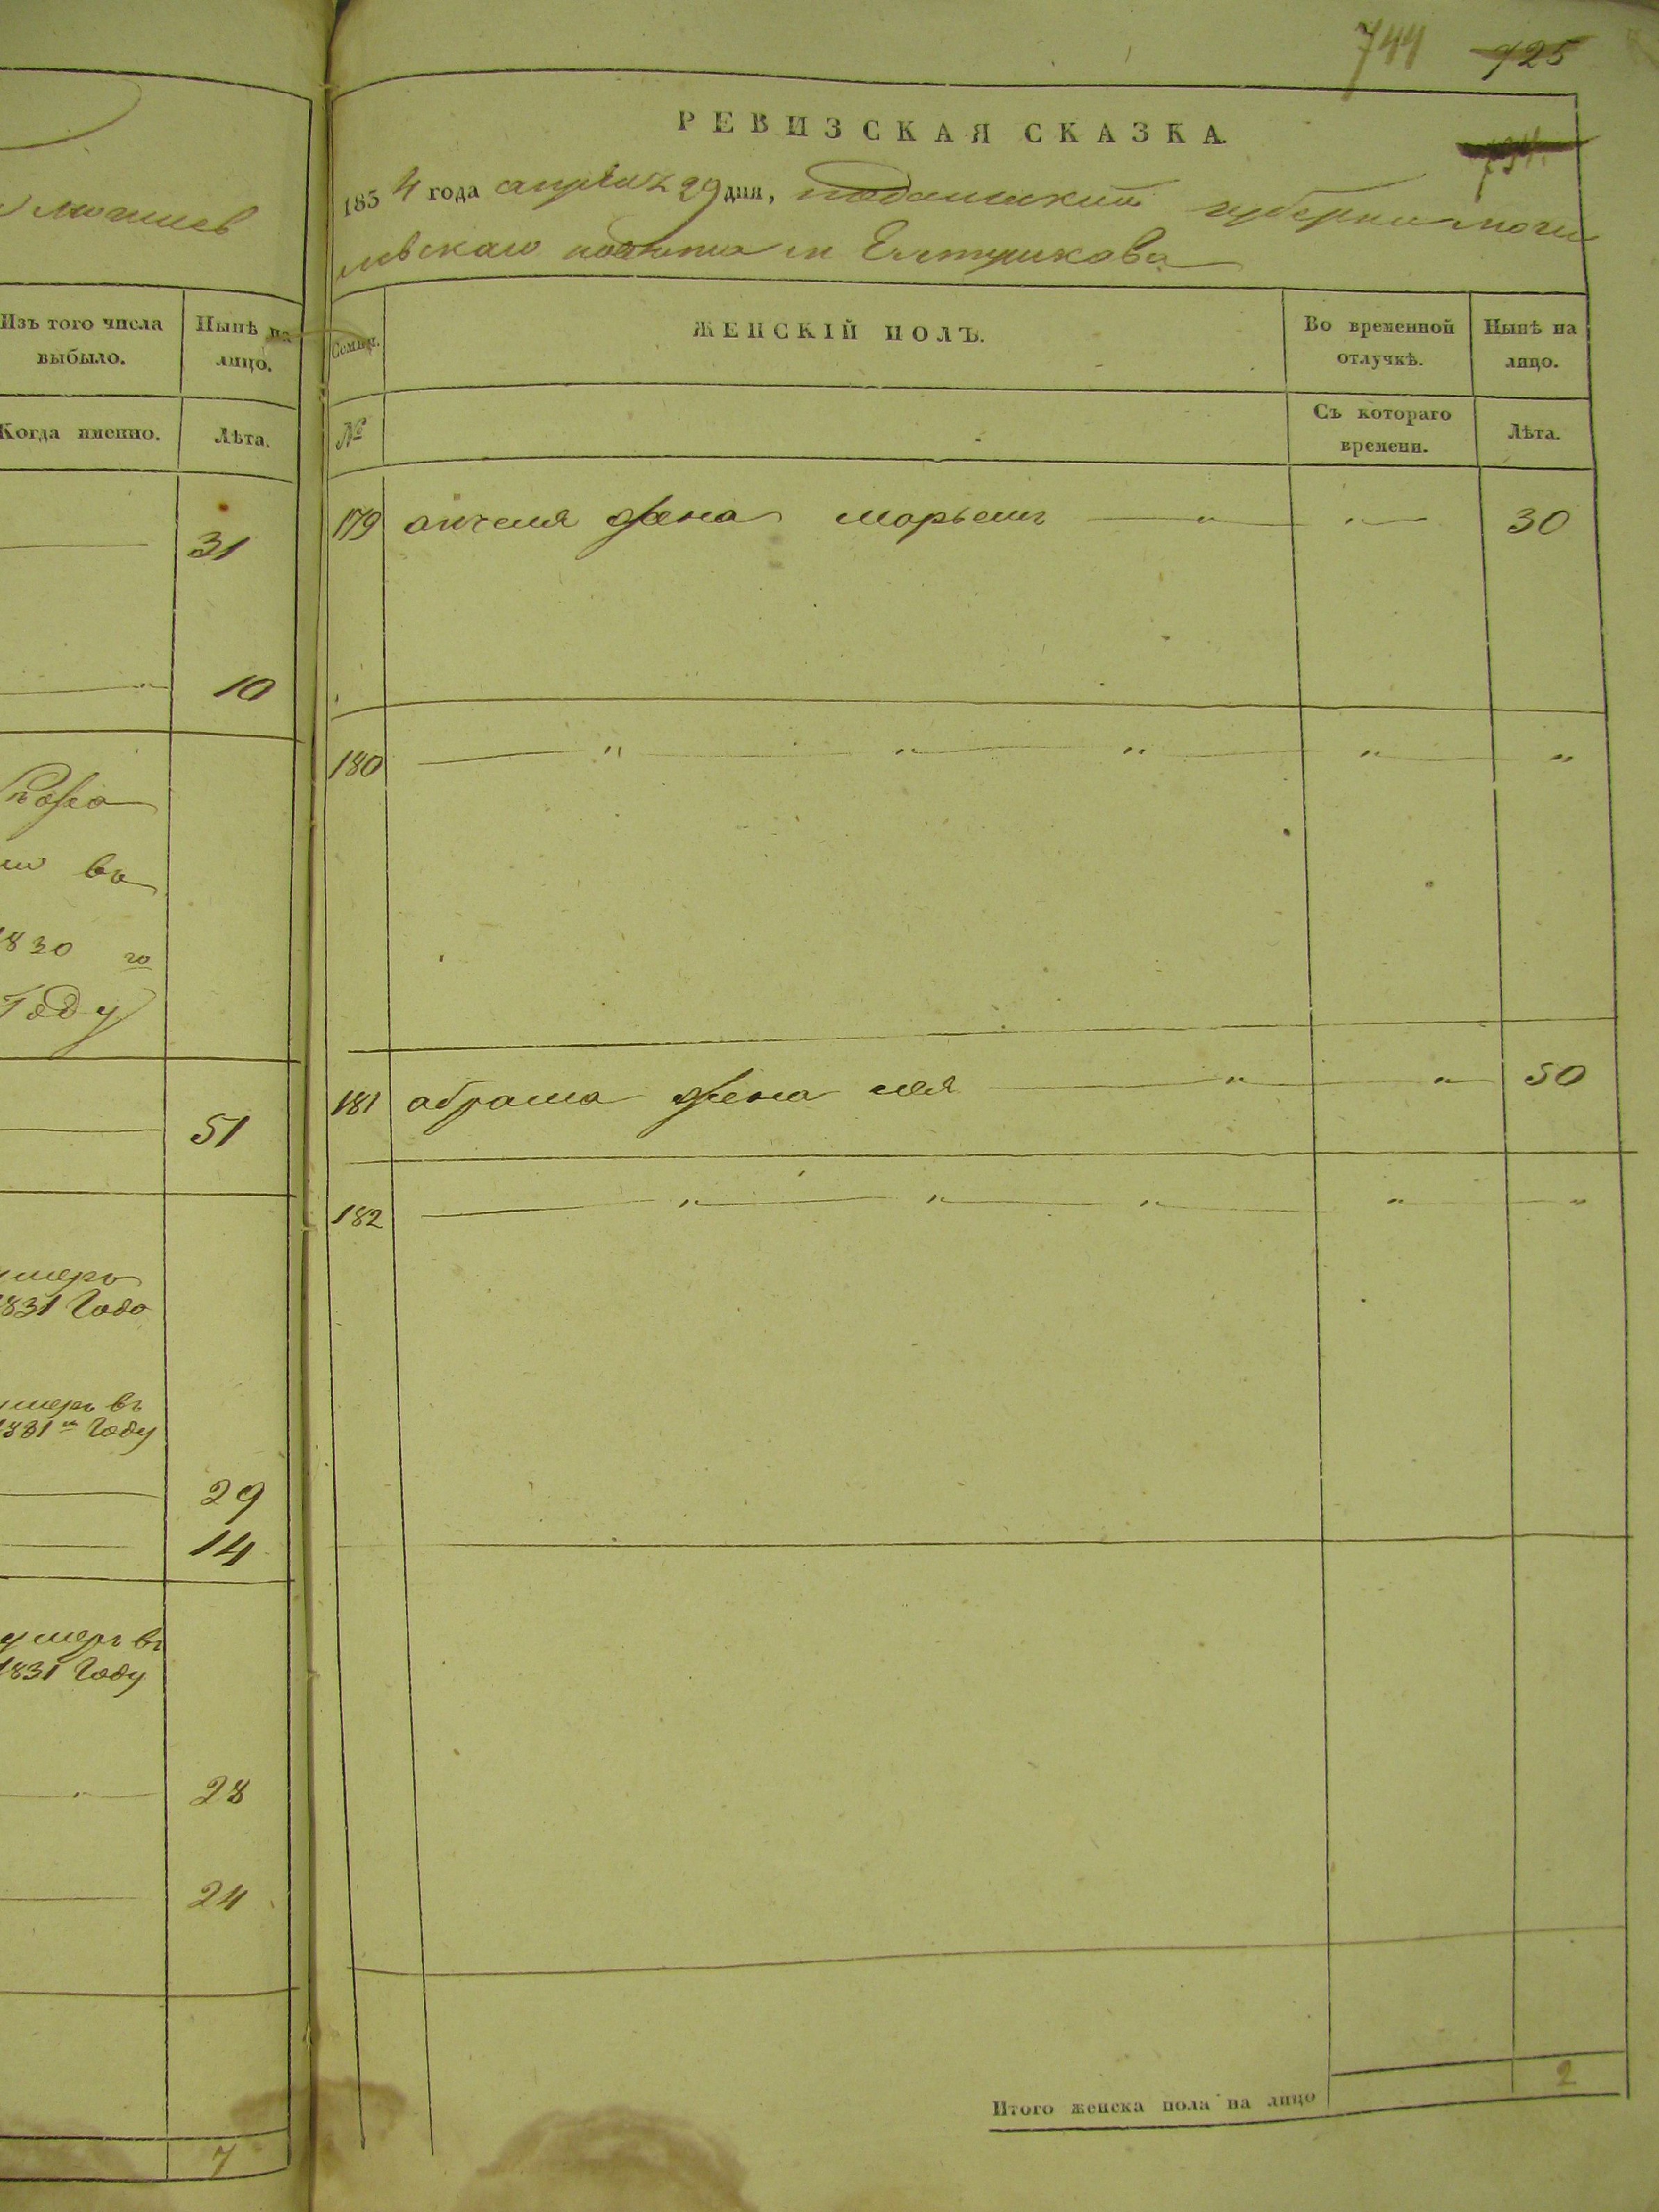 744 725
734.
могилев
Изъ того числа выбыло.
Нынѣ на лицо.
Когда именно.
Лѣта.
31
10
въ
1830 го
Году
51
умеръ
1831 Года
умеръ въ
1831 м Году
29
14
умеръ въ
1831 Году
28
24
7
РЕВИЗСКАЯ СКАЗКА.
1854 года апреля 29 дня, подольской губернии моги
левского повета м Елтушкова
Семьи.
ЖЕНСКІЙ ПОЛЪ.
Во временной отлучкѣ.
Нынѣ на лицо.
№
Съ котораго времени.
Лѣта.
179 анчеля жена марьемъ — " — " — 30
180 — " — " — " — " — "
181 абрама жена лея — " — " — 50
182 — " — " — " — " — "
Итого женска пола на лицо 2